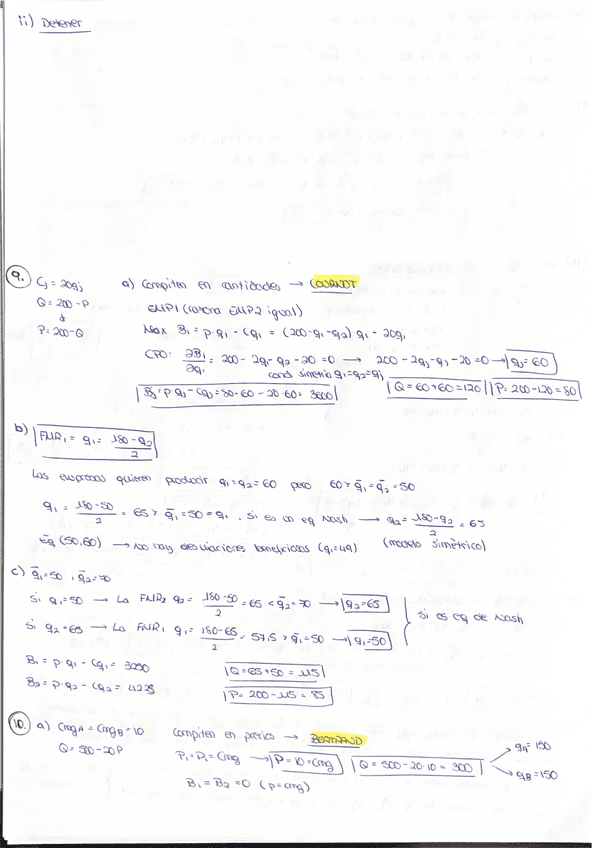 ii) Detener
9. Cj = 20qj
Q = 200 - P
P = 200 - Q
a) Compiten en cantidades → COURNOT
EMP1 (razona EMP2 igual)
Max B₁ = p·q₁ - Cq₁ = (200-q₁-q₂) q₁ - 20q₁
CPO: ∂B₁/∂q₁ = 200 - 2q₁ - q₂ - 20 = 0 → 200 - 2qj - qj - 20 = 0 → qj = 60
cond simetría q₁=q₂=qj
Bj = P·qj - Cqj = 80·60 - 20·60 = 3600 Q = 60+60 = 120 P = 200-120 = 80
b) FMR₁ = q₁ = (180-q₂)/2
Las empresas quieren producir q₁=q₂=60 pero 60 > q̄₁=q̄₂=50
q₁ = (180-50)/2 = 65 > q̄₁=50=q₁. Si es un eq Nash → q₂ = (180-q₂)/2 = 65
Eq (50,60) → No hay desviaciones beneficiosas (q₁=49) (modelo simétrico)
c) q̄₁=50, q̄₂=70
Si q₁=50 → La FMR₂ q₂ = (180-50)/2 = 65 < q̄₂=70 → q₂=65
Si q₂=65 → La FMR₁ q₁ = (180-65)/2 = 57,5 > q̄₁=50 → q₁=50
Si es eq de Nash
B₁ = p·q₁ - Cq₁ = 3250 Q = 65+50 = 115
B₂ = p·q₂ - Cq₂ = 4225 P = 200-115 = 85
10. a) CmgA = CmgB = 10 Compiten en precios → BERTRAND
Q = 500 - 20P
P₁=P₂=Cmg → P=10=Cmg Q = 500-20·10 = 300 qA=150
qB=150
B₁ = B₂ = 0 (p=cmg)